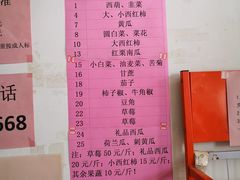 准
推按成人标
话
668
1 西葫、韭菜
4 大、小西红柿
7 黄瓜
8 圆白菜、菜花
10 大西红柿
13 红果南瓜
15 小白菜、油麦菜、苦菊
16 甘蔗
18 茄子
19 柿子椒、牛角椒
20 豆角
22 草莓
23 草莓
24 礼品西瓜
25 荷兰瓜、刺黄瓜
注：草莓 50 元/斤；礼品西瓜
20 元/斤；小西红柿 15 元/斤；
其余果蔬 10 元/斤！